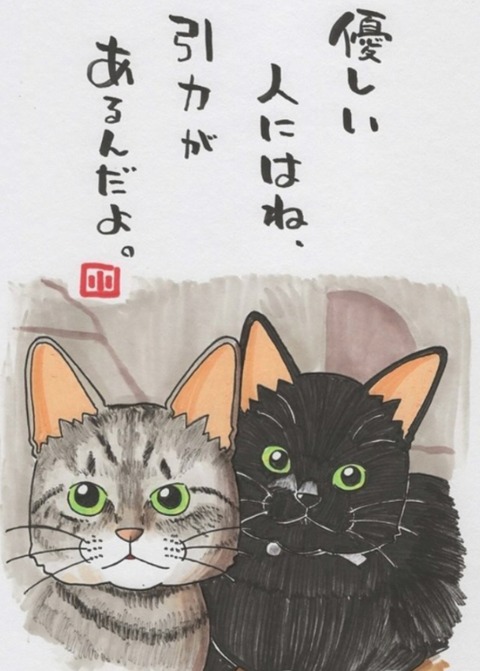 優しい
人にはね、
引力が
あるんだよ。
小